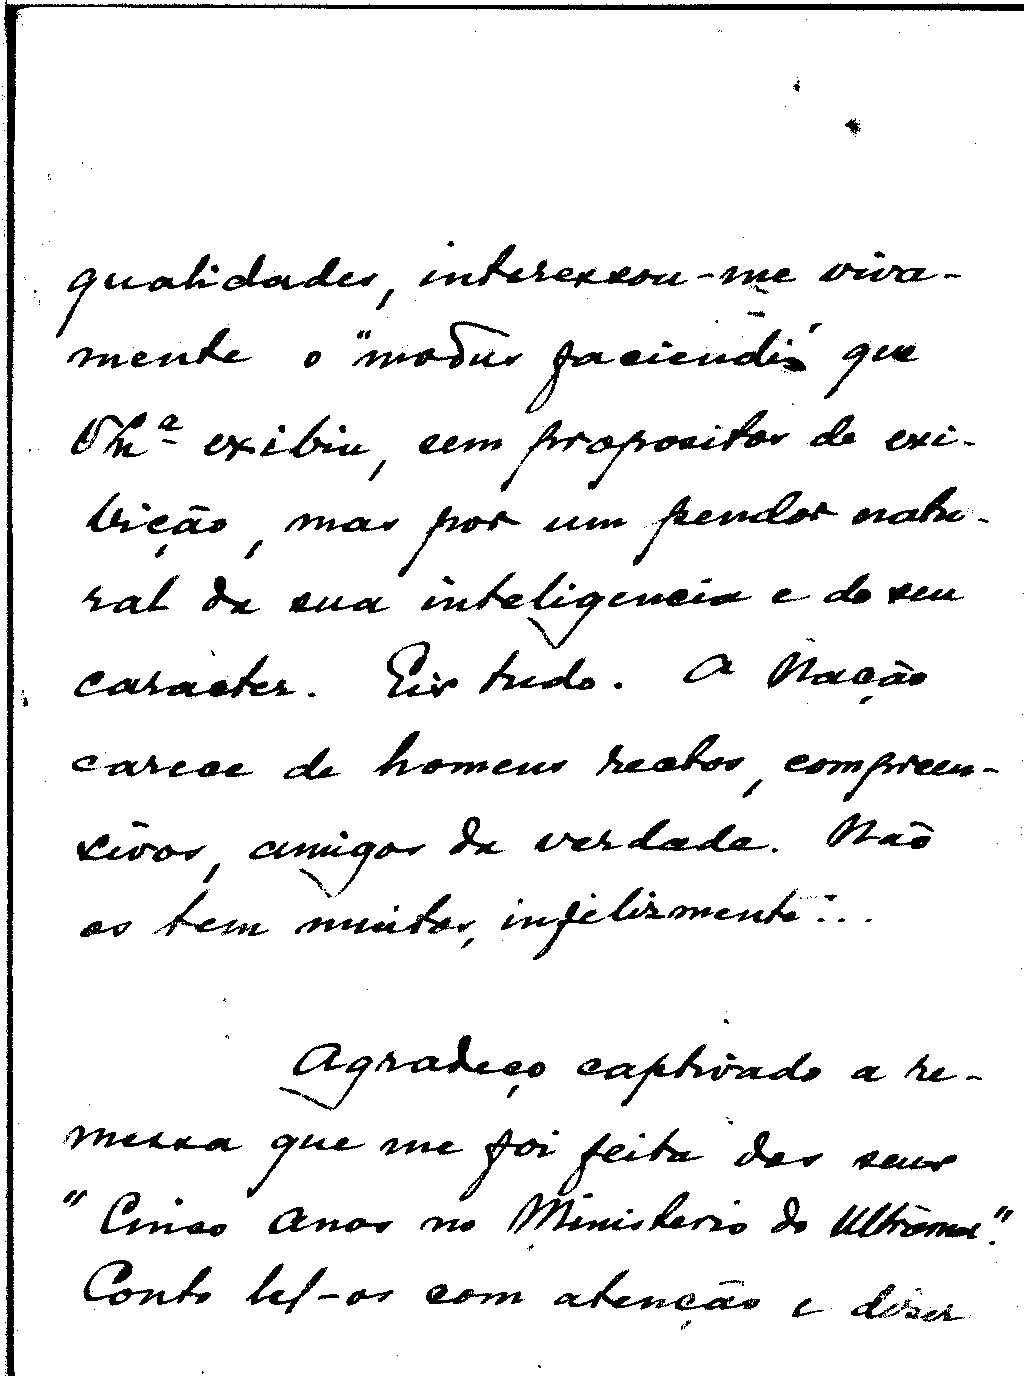 qualidades, interessou-me viva-
mente o "modus faciendi" que
exibiu, sem propositos de exi-
bição, mas por um pendor natu-
ral da sua inteligencia e do seu
caracter. Eis tudo. A Nação
carece de homens rectos, compreen-
sivos, amigos da verdade. Não
os tem muitos, infelizmente...
Agradeço captivado a re-
messa que me foi feita dos seus
"Cinco Anos no Ministerio do Ultramar".
Conto lel-os com atenção e dizer